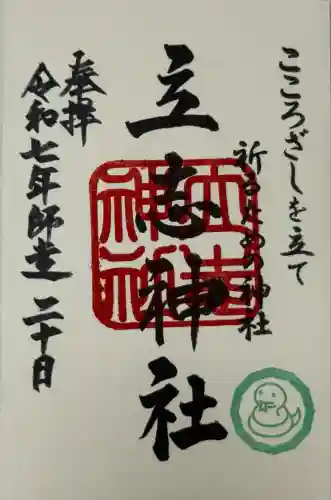 こころざしを立て
祈るための神社
立志神社
奉拝
令和七年師走二十日
立志神社